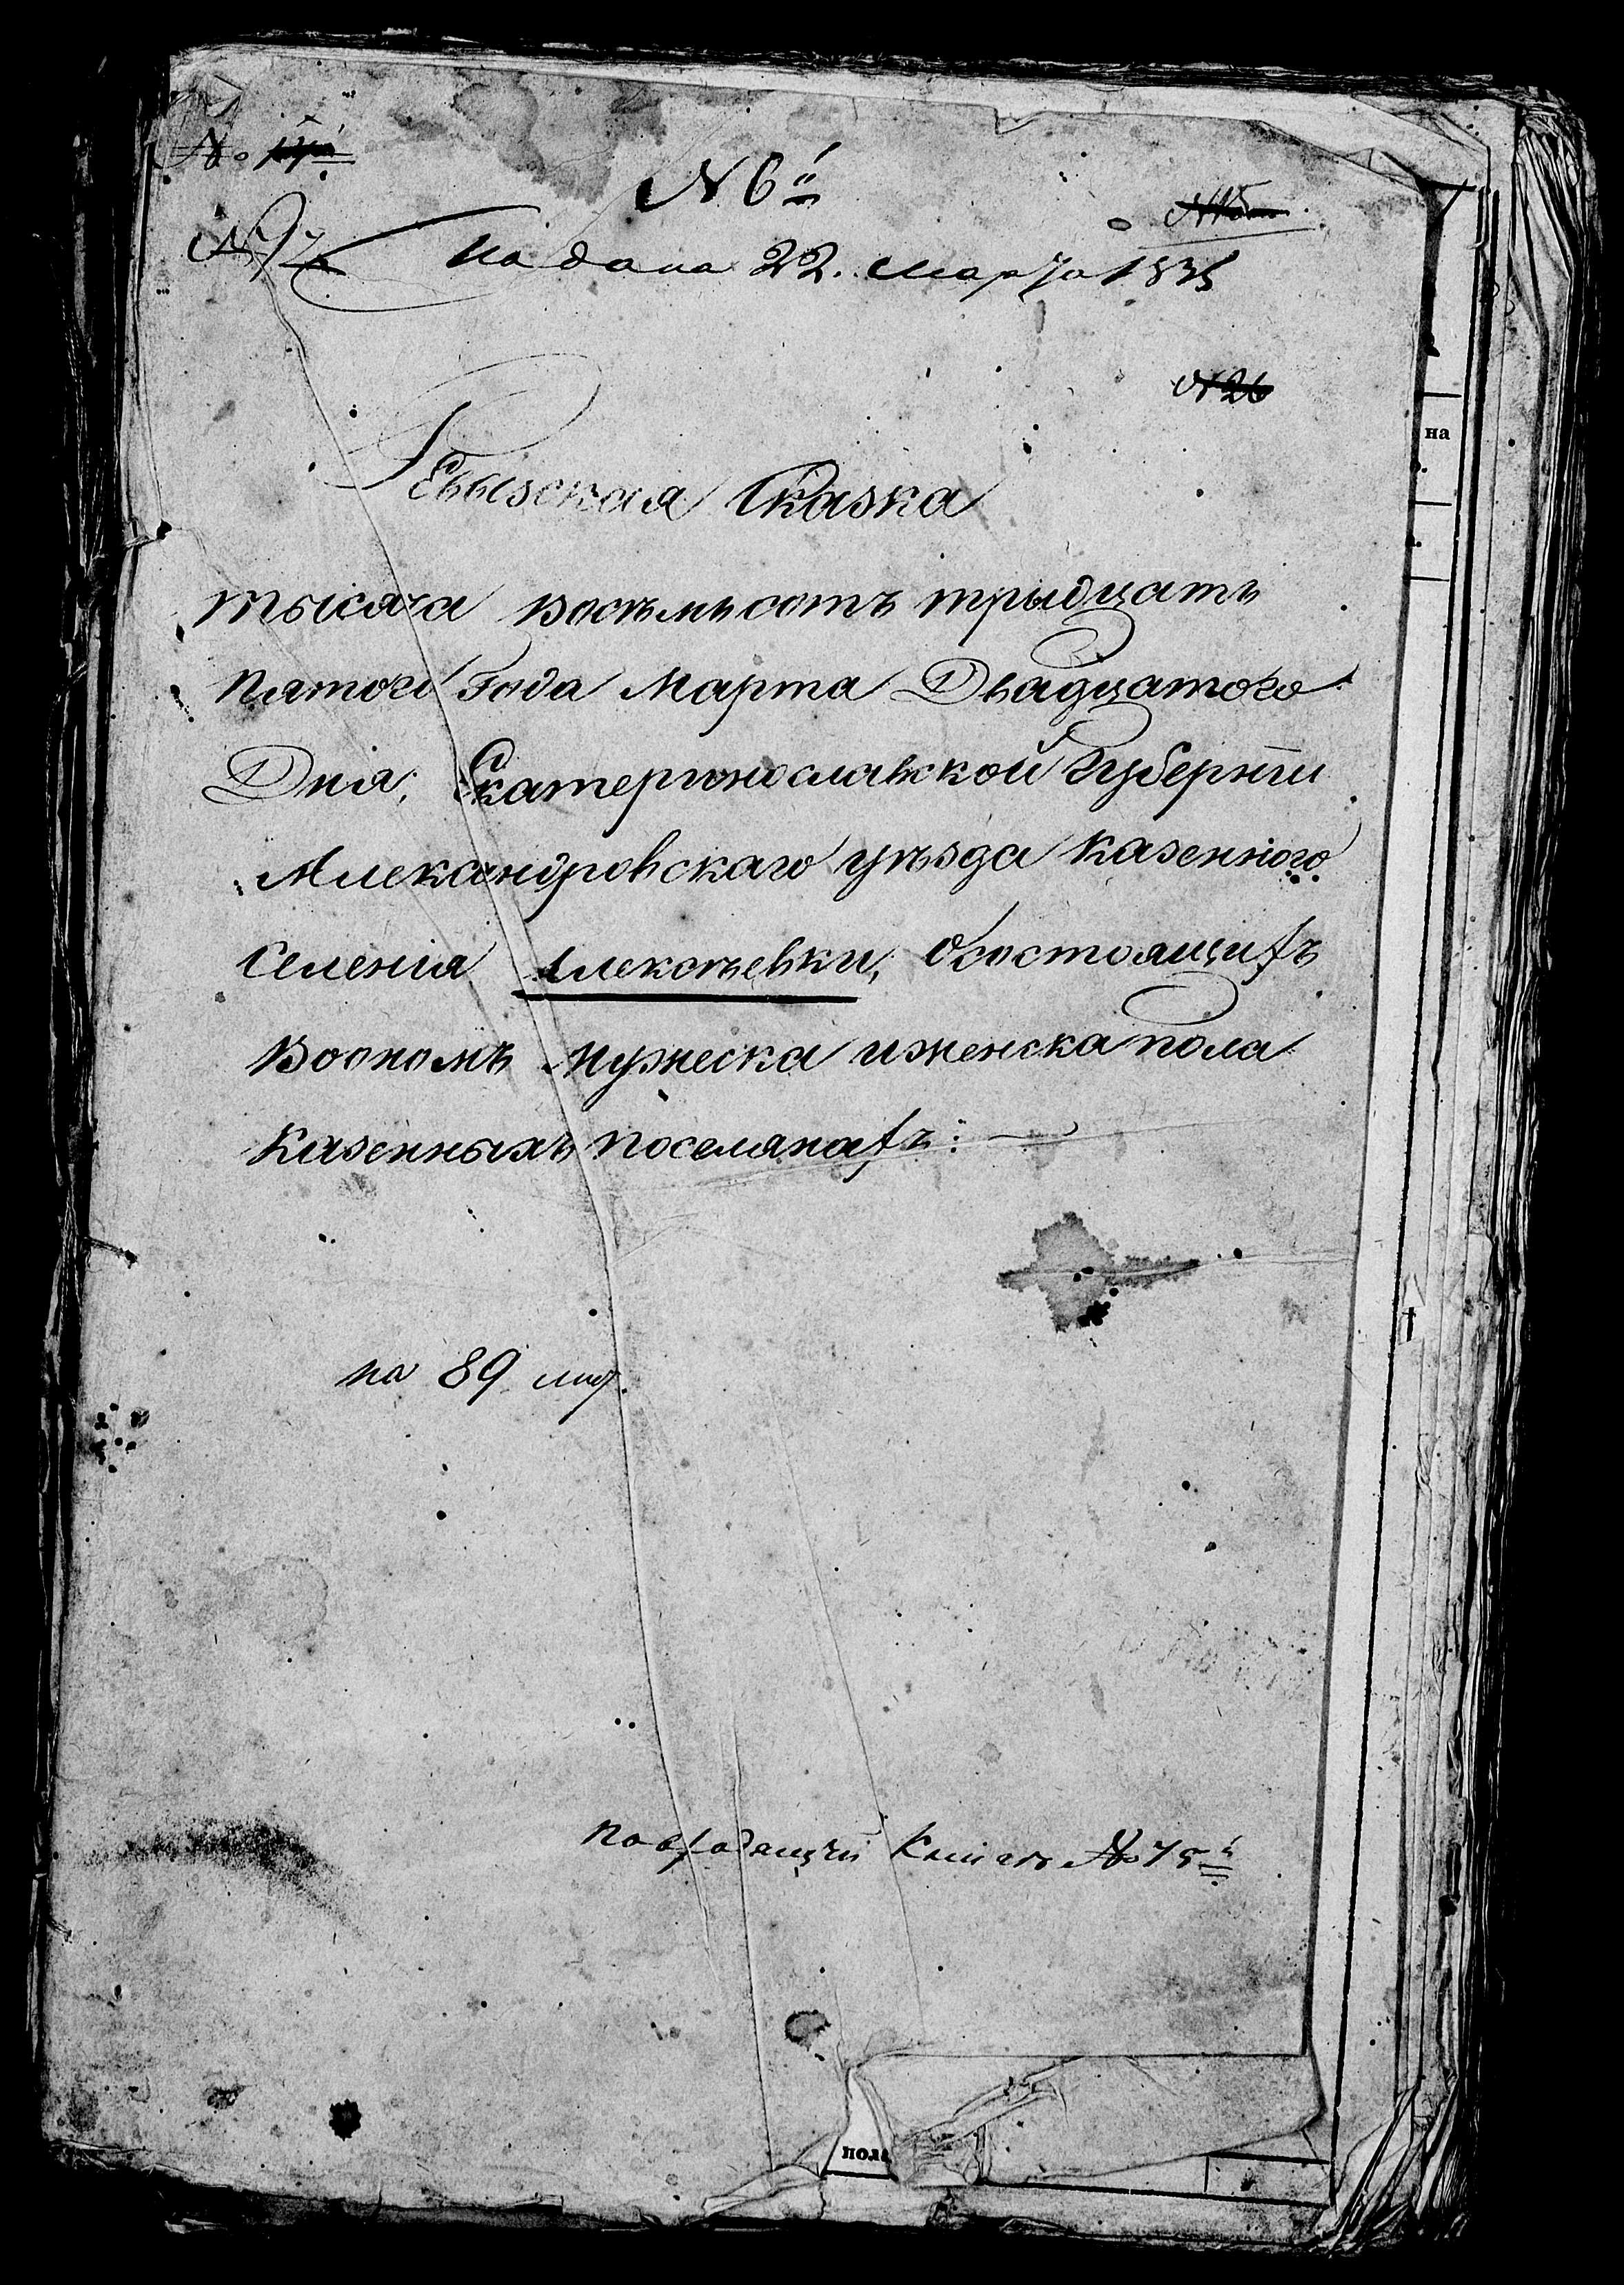 N 6й
Подана 22. марта 1835
N 26
Ревызская Сказка
тысяча восемьсотъ трыдцать
Пятого Года Марта Двадцатого
Дня, Екатеринославской Губерніи
Александровскаго уѣзда казенного
Селенія Алексѣевки, Осостоящихъ
Воономъ мужеска иженска пола
Казенныхъ поселянахъ:
на 89 лис.
По входящей Книгѣ № 75й
на
пола